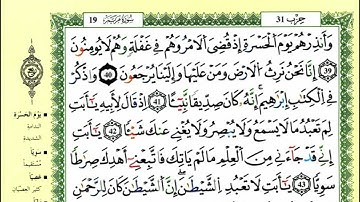 19 سُورَةُ مَرْيَمَ
حِزْب 31
وَأَنذِرْهُمْ يَوْمَ ٱلْحَسْرَةِ إِذْ قُضِيَ ٱلْأَمْرُ وَهُمْ فِي غَفْلَةٍ وَهُمْ لَا يُومِنُونَ
39 إِنَّا نَحْنُ نَرِثُ ٱلْأَرْضَ وَمَنْ عَلَيْهَا وَإِلَيْنَا يُرْجَعُونَ 40 وَٱذْكُرْ
فِي ٱلْكِتَٰبِ إِبْرَٰهِيمَ إِنَّهُۥ كَانَ صِدِّيقاً نَّبِيٓـًٔا 41 إِذْ قَالَ لِأَبِيهِ يَٰٓأَبَتِ
لِمَ تَعْبُدُ مَا لَا يَسْمَعُ وَلَا يُبْصِرُ وَلَا يُغْنِي عَنكَ شَيْـًٔا 42 يَٰٓأَبَتِ
إِنِّي قَدْ جَآءَنِي مِنَ ٱلْعِلْمِ مَا لَمْ يَاتِكَ فَٱتَّبِعْنِيٓ أَهْدِكَ صِرَٰطاً
سَوِيّاً 43 يَٰٓأَبَتِ لَا تَعْبُدِ ٱلشَّيْطَٰنَ إِنَّ ٱلشَّيْطَٰنَ كَانَ لِلرَّحْمَٰنِ
يَوْمَ الحَسْرَةِ
الندامة
سَوِيّاً
مُسْتَقِيماً
عَصِيّاً
كثير العصيان